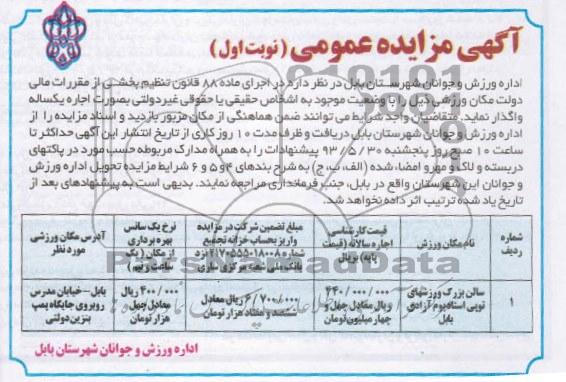 آگهی مزایده عمومی (نوبت اول)
اداره ورزش و جوانان شهرستان بابل در نظر دارد در اجرای ماده ۸۸ قانون تنظیم بخشی از مقررات مالی
دولت مکان ورزشی ذیل را با وضعیت موجود به اشخاص حقیقی یا حقوقی غیردولتی بصورت اجاره یکساله
واگذار نماید. متقاضیان واجد شرایط می توانند ضمن هماهنگی از مکان مزبور بازدید و اسناد مزایده را از
اداره ورزش و جوانان شهرستان بابل دریافت و ظرف مدت ۱۰ روز کاری از تاریخ انتشار این آگهی حداکثر تا
ساعت ۱۰ صبح روز پنجشنبه ۳۰ / ۵ / ۹۳ پیشنهادات را به همراه مدارک مربوطه حسب مورد در پاکتهای
دربسته و لاک و مهر و امضاء شده (الف، ب، ج) به شرح بندهای ۴ و ۵ و ۶ شرایط مزایده تحویل اداره ورزش
و جوانان این شهرستان واقع در بابل، جنب فرمانداری مراجعه نمایند. بدیهی است به پیشنهادهای بعد از
تاریخ یاد شده ترتیب اثر داده نخواهد شد.
شماره ردیف
نام مکان ورزش
قیمت کارشناسی اجاره سالانه (قیمت پایه) بریال
مبلغ تضمین شرکت در مزایده واریز بحساب خزانه تجمیع شماره ۲۱۷۰۵۵۵۰۱۸۰۰۸ نزد بانک ملی شعبه مرکزی ساری
نرخ یک سانس بهره برداری از مکان (یک ساعت و نیم)
آدرس مکان ورزشی مورد نظر
۱
سالن بزرگ ورزشهای توپی استادیوم آزادی بابل
۴۴۰/۰۰۰/۰۰۰ ریال معادل چهل و چهار میلیون تومان
۶/۷۰۰/۰۰۰ ریال معادل ششصد و هفتاد هزار تومان
۴۰۰/۰۰۰ ریال معادل چهل هزار تومان
بابل - خیابان مدرس روبروی جایگاه پمپ بنزین دولتی
اداره ورزش و جوانان شهرستان بابل
ParsNamadData